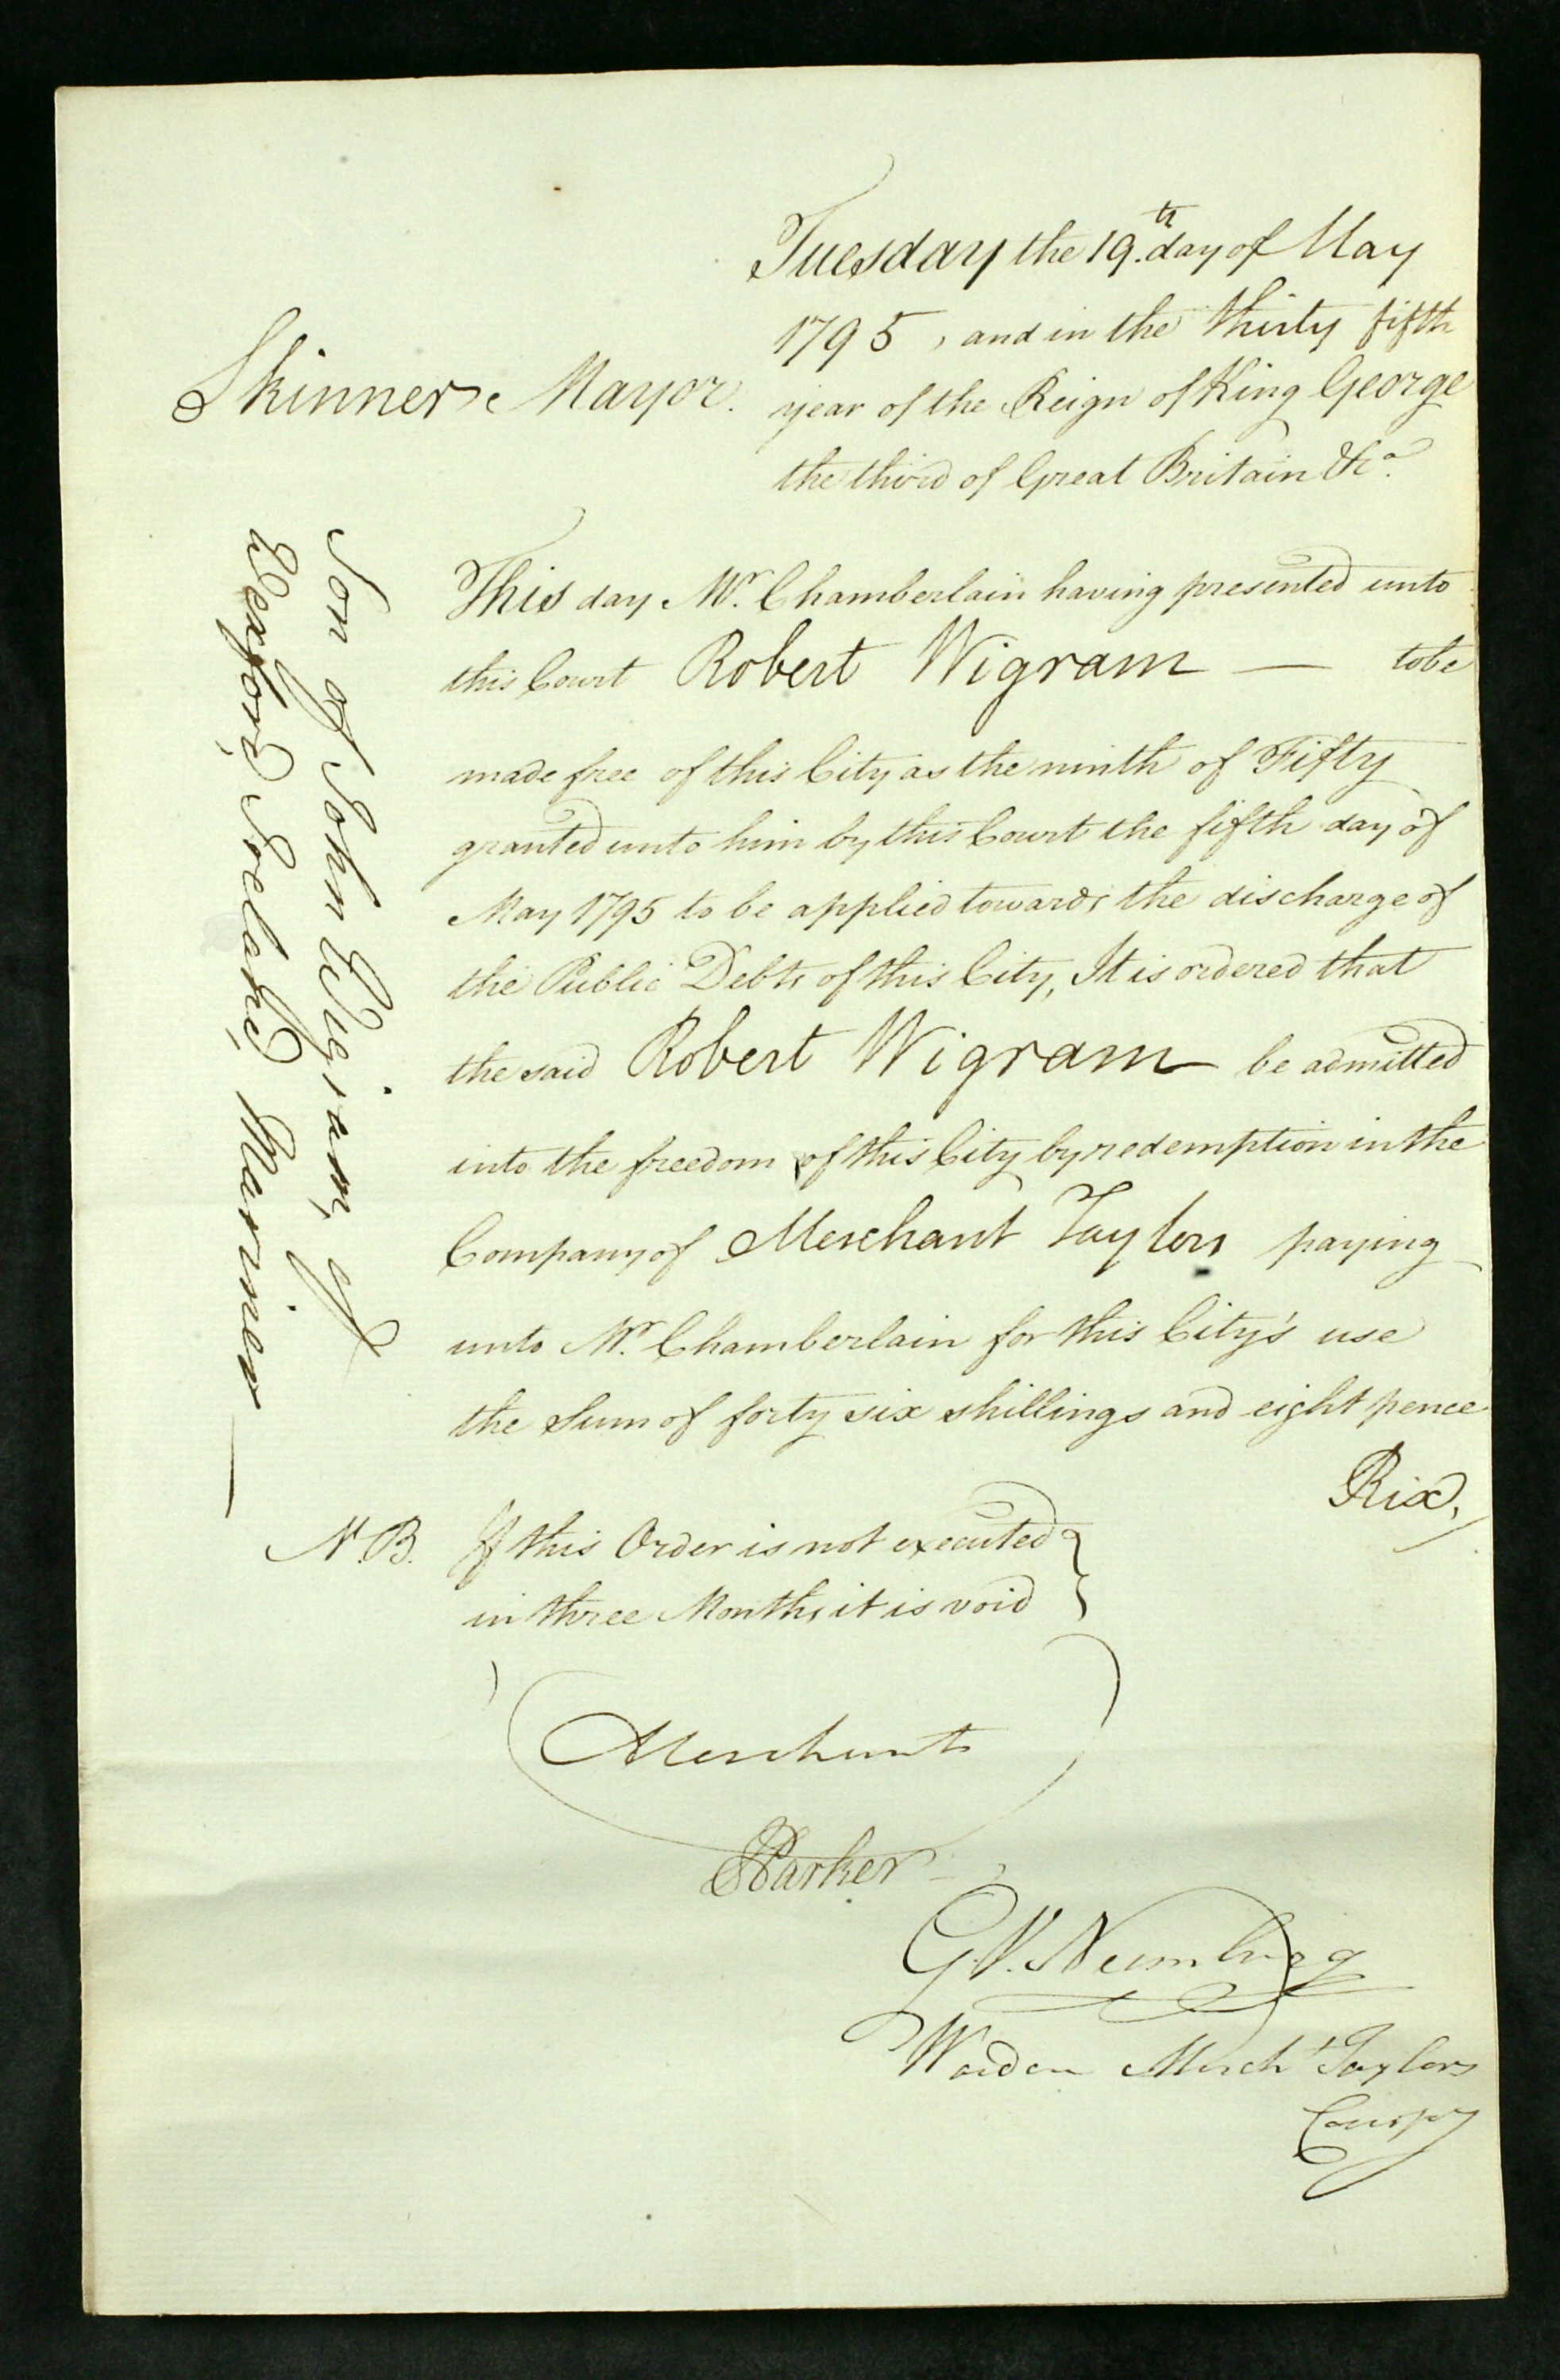 Tuesday the 19.th day of May
1795, and in the thirty fifth
Skinner Mayor.
year of the Reign of King George
the third of Great Britain &ca.
This day Mr. Chamberlain having presented unto
this Court Robert Wigram — to be
made free of this City as the ninth of Fifty
granted unto him by this Court the fifth day of
May 1795 to be applied towards the discharge of
the Public Debts of this City, It is ordered that
the said Robert Wigram be admitted
into the freedom of this City by redemption in the
Company of Merchant Taylors paying
unto Mr. Chamberlain for this City's use
the Sum of forty six shillings and eight pence
Rix,
N.B. If this Order is not executed
in three Months it is void
Son of John Wigram, of
Wexford, Ireland, Mariner —
Merchant
Parker
G.V. Neunburg
Warden Mercht Taylors
Compy